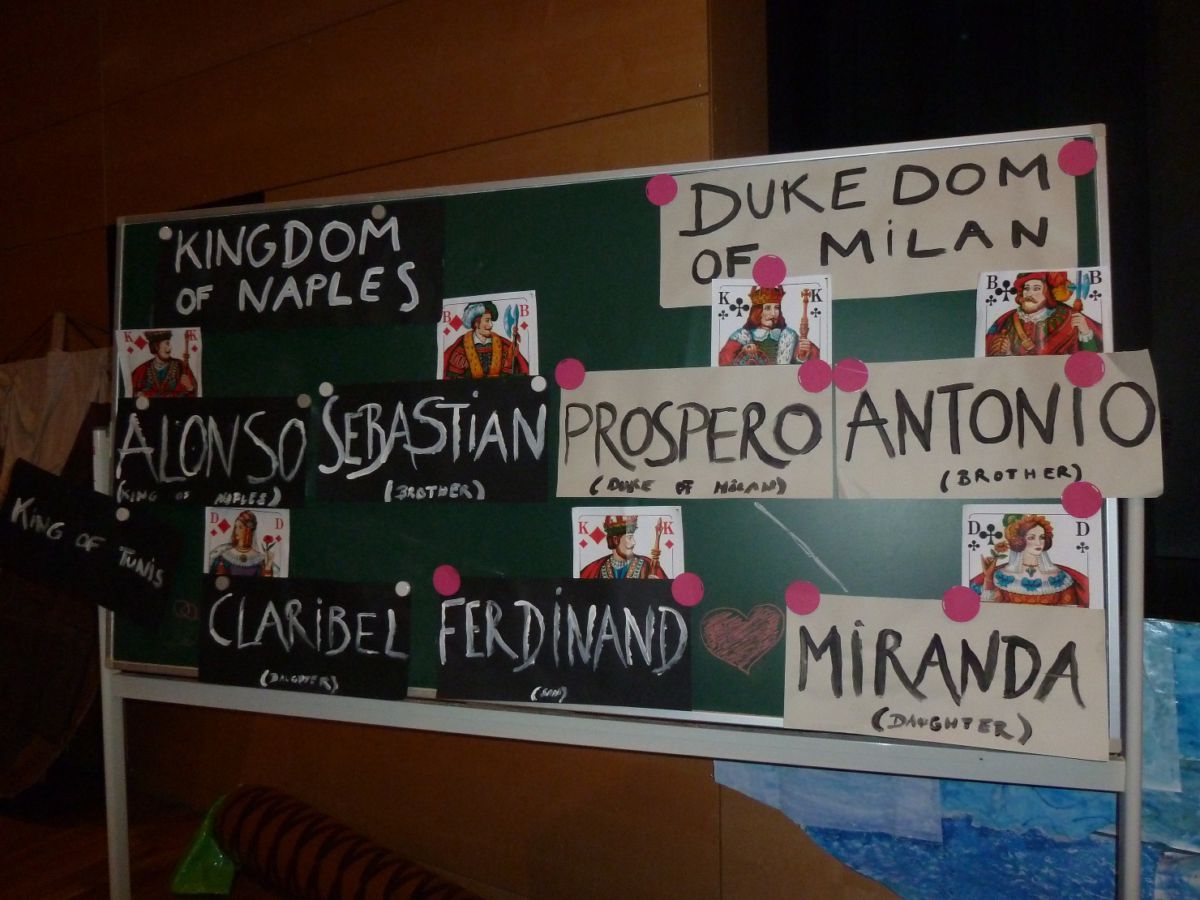 KINGDOM
OF NAPLES
DUKEDOM
OF MILAN
K K
B B
K K
B B
ALONSO
(KING OF NAPLES)
SEBASTIAN
(BROTHER)
PROSPERO
(DUKE OF MILAN)
ANTONIO
(BROTHER)
KING OF TUNIS
D D
K K
D D
CLARIBEL
(DAUGHTER)
FERDINAND
(SON)
MIRANDA
(DAUGHTER)